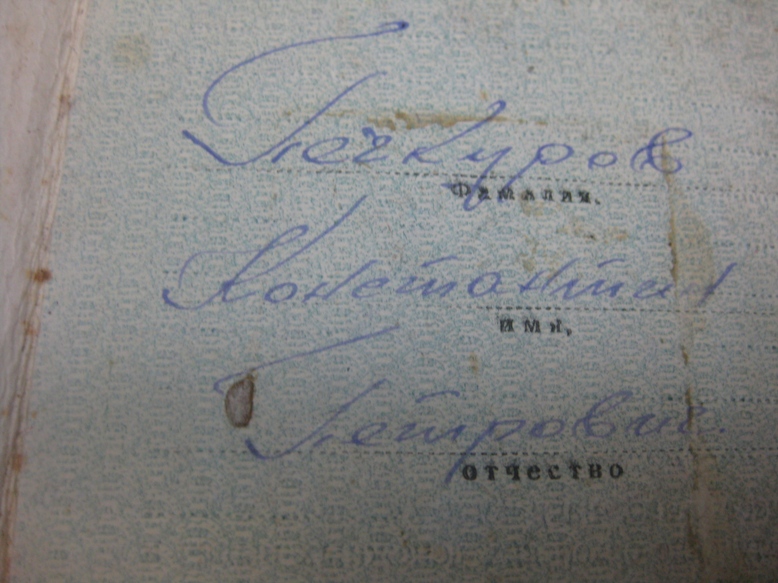 Печкуров
Фамилия.
Константин
имя,
Петрович
отчество